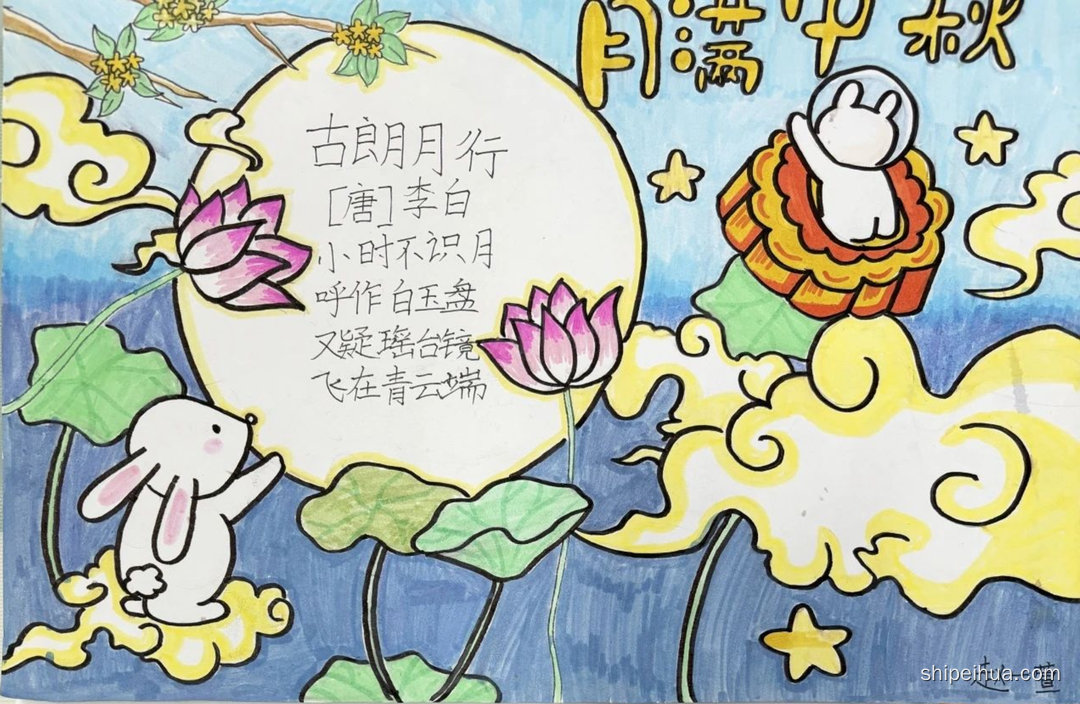 月满中秋
古朗月行
[唐]李白
小时不识月
呼作白玉盘
又疑瑶台镜
飞在青云端
赵一萱
shipeihua.com